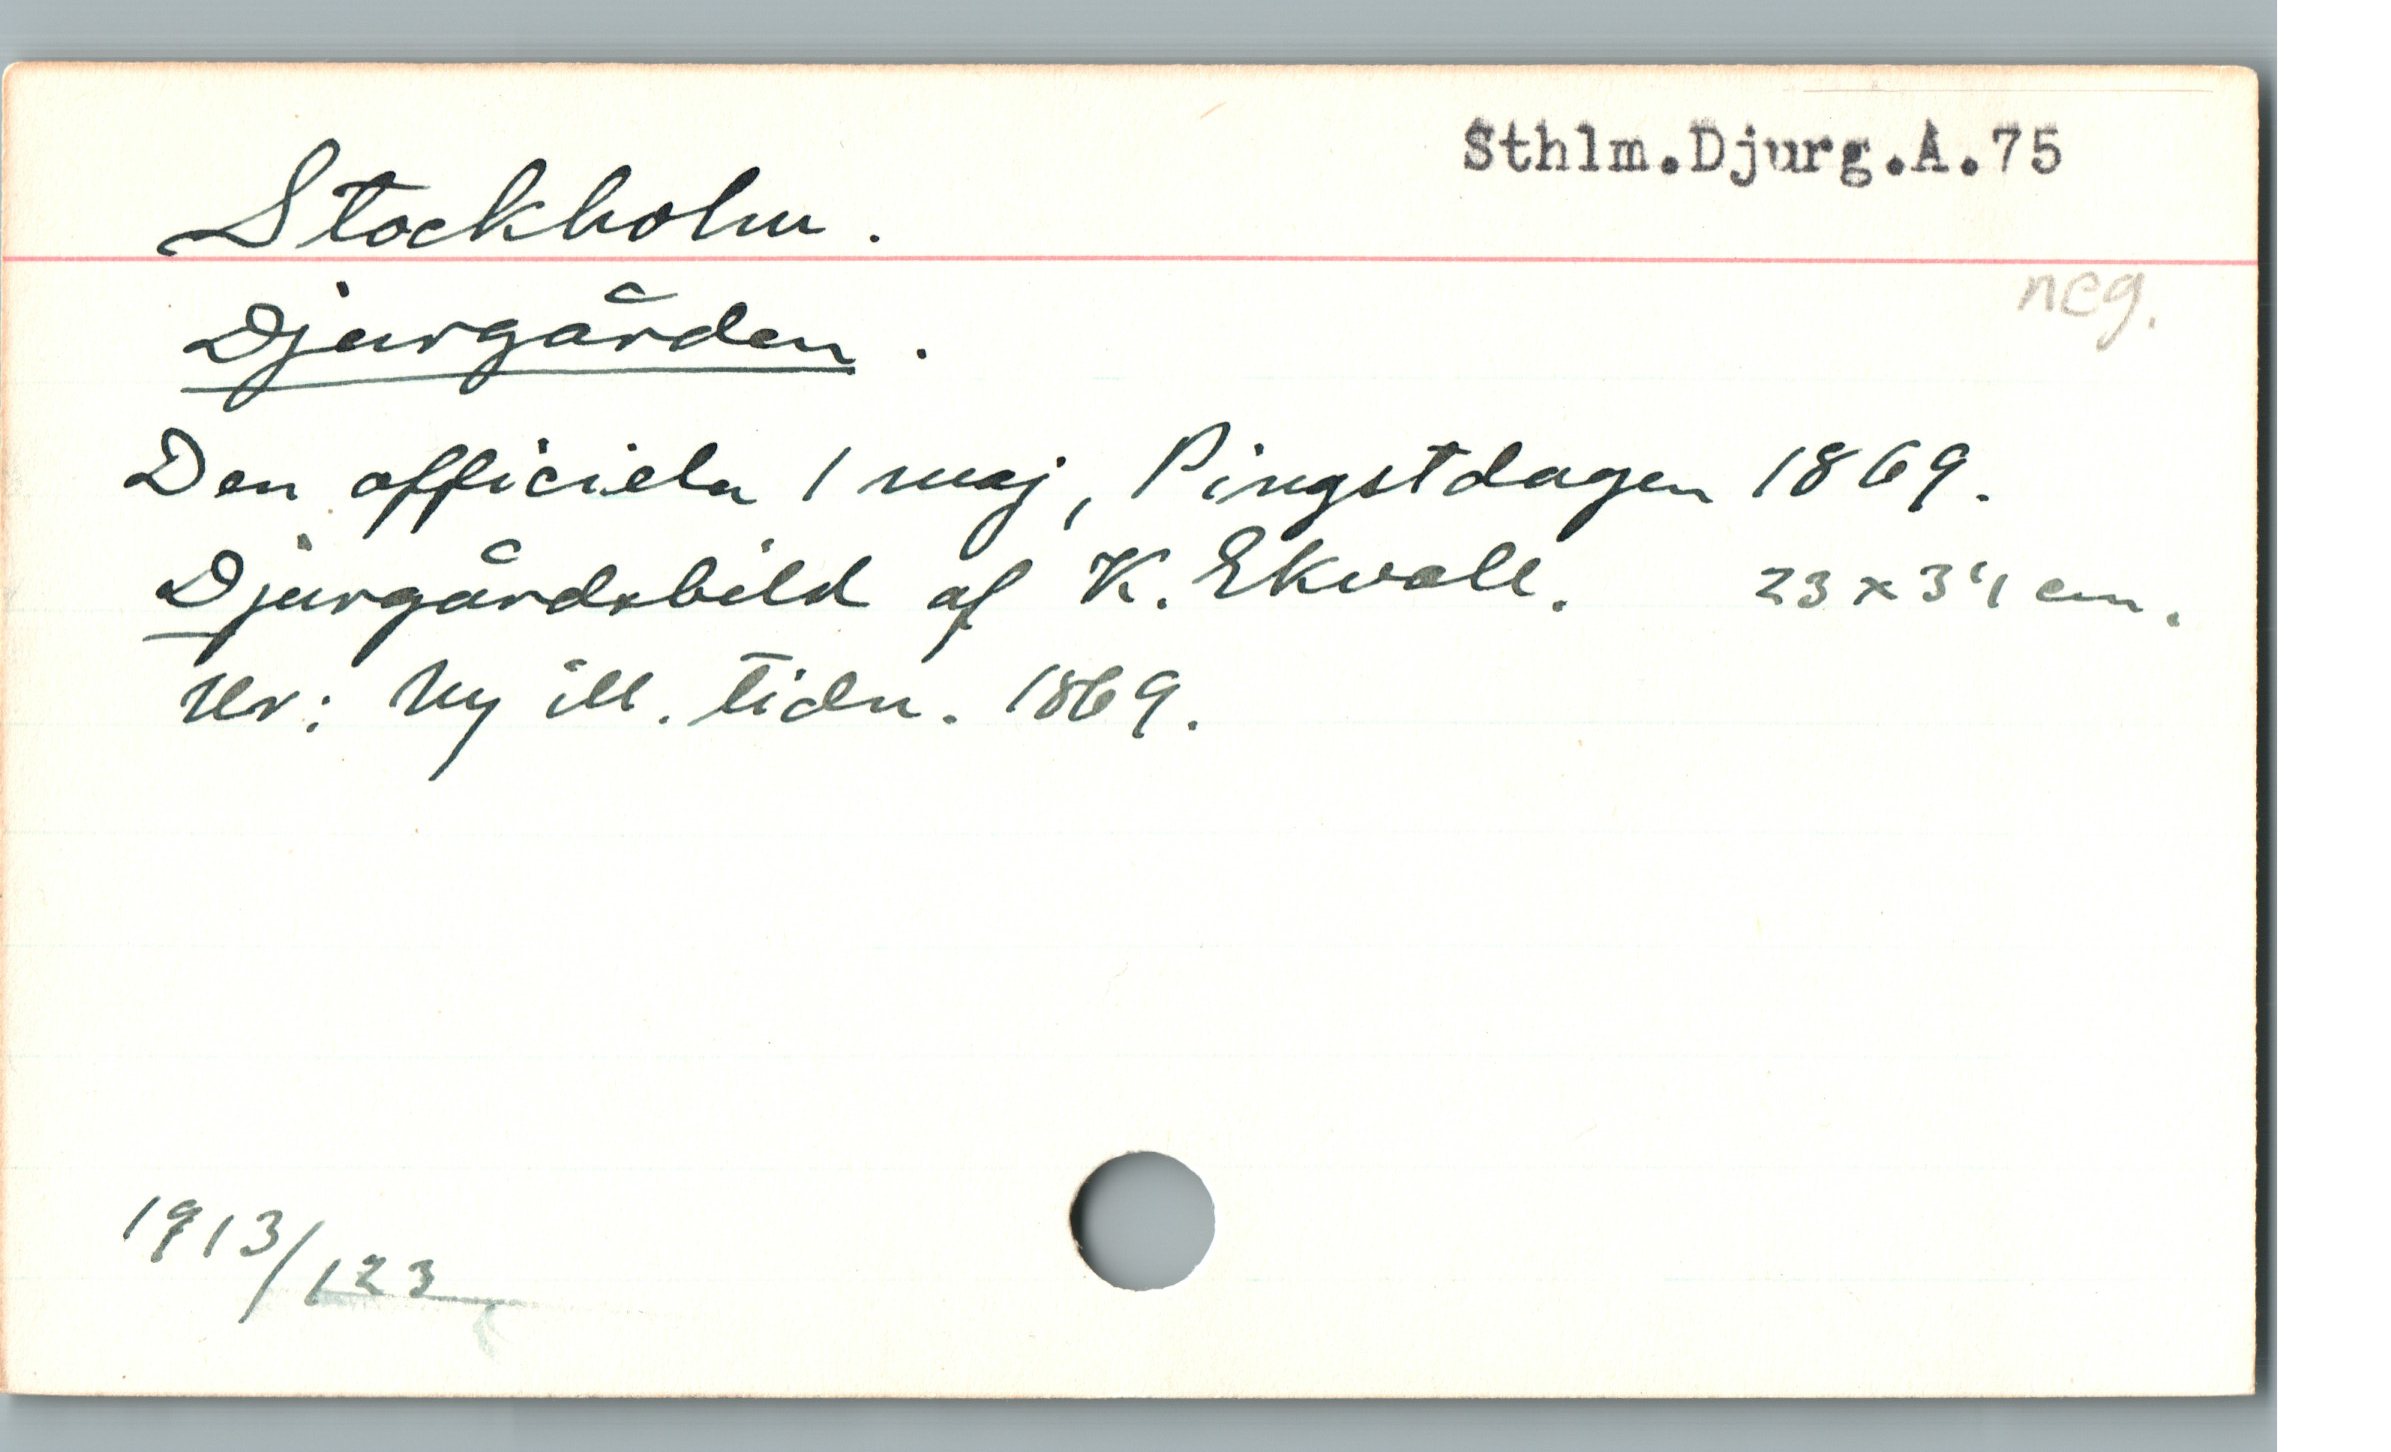 Sthlm.Djurg.A.75
Stockholm.
neg.
Djurgården.
Den officiela 1 maj, Pingstdagen 1869.
Djurgårdsbild af K. Ekvall. 23 x 34 cm.
Ur: Ny ill. tidn. 1869.
1913/123